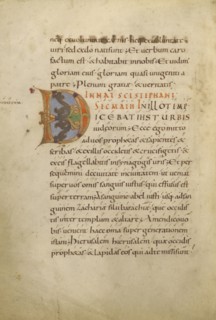 uiri sed exdo natisunt & verbum caro
factum est & habitabit innobis & uidim
gloriam eius gloriam quasi unigeniti a
patre plenum gratiae & ueritatis
IN NAT SCI STEPHANI
IN ILLO TEMP
DICEBAT IHS TURBIS
iudeorum & Ecce ego mitto
ad uos prophetas & sapientes &
scribas & exillis occidetis & crucifigetis &
exeis flagellabitis insynagogis uris & per
sequemini deciuitate inciuitatem ut ueniat
super uos omnis sanguis iustus qui effusus est
super terram asanguine abel iusti usq; adsan
guinem Zachariae filii barachiae quem occidistis
inter templum & altare Amen dico uo
bis uenient haec omia super generationem
istam hierusalem hierusalem quae occidis
prophetas & lapidas eos qui adte missi sunt